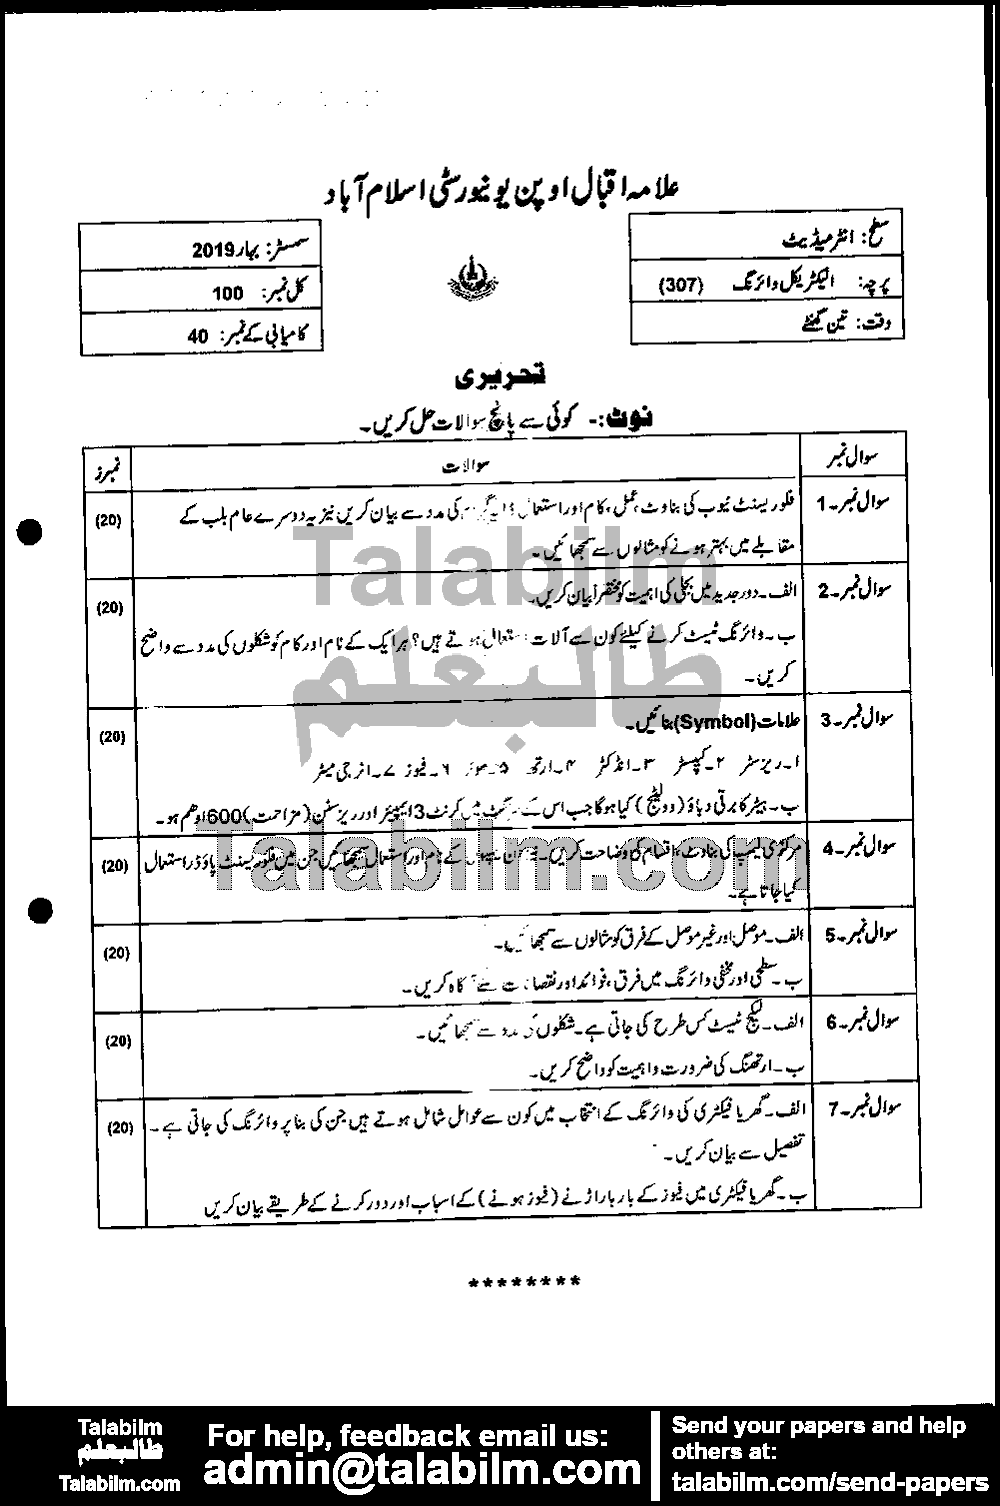 علامہ اقبال اوپن یونیورسٹی اسلام آباد
سطح: انٹرمیڈیٹ
پرچہ: الیکٹریکل وائرنگ (307)
وقت: تین گھنٹے
سمسٹر: بہار 2019
کل نمبر: 100
کامیابی کے نمبر: 40
تحریری
نوٹ:- کوئی سے پانچ سوالات حل کریں۔
سوال نمبر سوالات نمبرز
سوال نمبر۔1 فلوریسنٹ ٹیوب کی بناوٹ، عمل، کام اور استعمال کی مدد سے بیان کریں نیز یہ دوسرے عام بلب کے (20)
مقابلے میں بہتر ہونے کو مثالوں سے سمجھائیں۔
سوال نمبر۔2 الف۔ دور جدید میں بجلی کی اہمیت کو مختصراً بیان کریں۔ (20)
ب۔ وائرنگ ٹیسٹ کرنے کیلئے کون سے آلات استعمال ہوتے ہیں؟ ہر ایک کے نام اور کام کو شکلوں کی مدد سے واضح
کریں۔
سوال نمبر۔3 علامات (Symbol) بنائیں۔ (20)
۱۔ ریزسٹر ۲۔ کپیسٹر ۳۔ انڈکٹر ۴۔ ارتھ ۵۔ ۶۔ فیوز ۷۔ انرجی میٹر
ب۔ ہیٹر کا برقی دباؤ (وولٹیج) کیا ہوگا جب اس کے سرکٹ میں کرنٹ 3 ایمپئیر اور ریزسٹنس (مزاحمت) 600 اوھم ہو۔
سوال نمبر۔4 مرکری لیمپ کی بناوٹ، اقسام کی وضاحت کریں۔ کے نام اور استعمال سمجھائیں جن میں فلوریسنٹ پاؤڈر استعمال (20)
کیا جاتا ہے۔
سوال نمبر۔5 الف۔ موصل اور غیر موصل کے فرق کو مثالوں سے سمجھائیں۔ (20)
ب۔ سطحی اور مخفی وائرنگ میں فرق، فوائد اور نقصانات سے آگاہ کریں۔
سوال نمبر۔6 الف۔ لیکج ٹیسٹ کس طرح کی جاتی ہے۔ شکلوں کی مدد سے سمجھائیں۔ (20)
ب۔ ارتھنگ کی ضرورت و اہمیت کو واضح کریں۔
سوال نمبر۔7 الف۔ گھر یا فیکٹری کی وائرنگ کے انتخاب میں کون سے عوامل شامل ہوتے ہیں جن کی بنا پر وائرنگ کی جاتی ہے۔ (20)
تفصیل سے بیان کریں۔
ب۔ گھر یا فیکٹری میں فیوز کے بار بار اڑنے (فیوز ہونے) کے اسباب اور دور کرنے کے طریقے بیان کریں
********
Talabilm
طالبعلم
Talabilm.com
Talabilm
طالبعلم
Talabilm.com
For help, feedback email us:
admin@talabilm.com
Send your papers and help
others at:
talabilm.com/send-papers